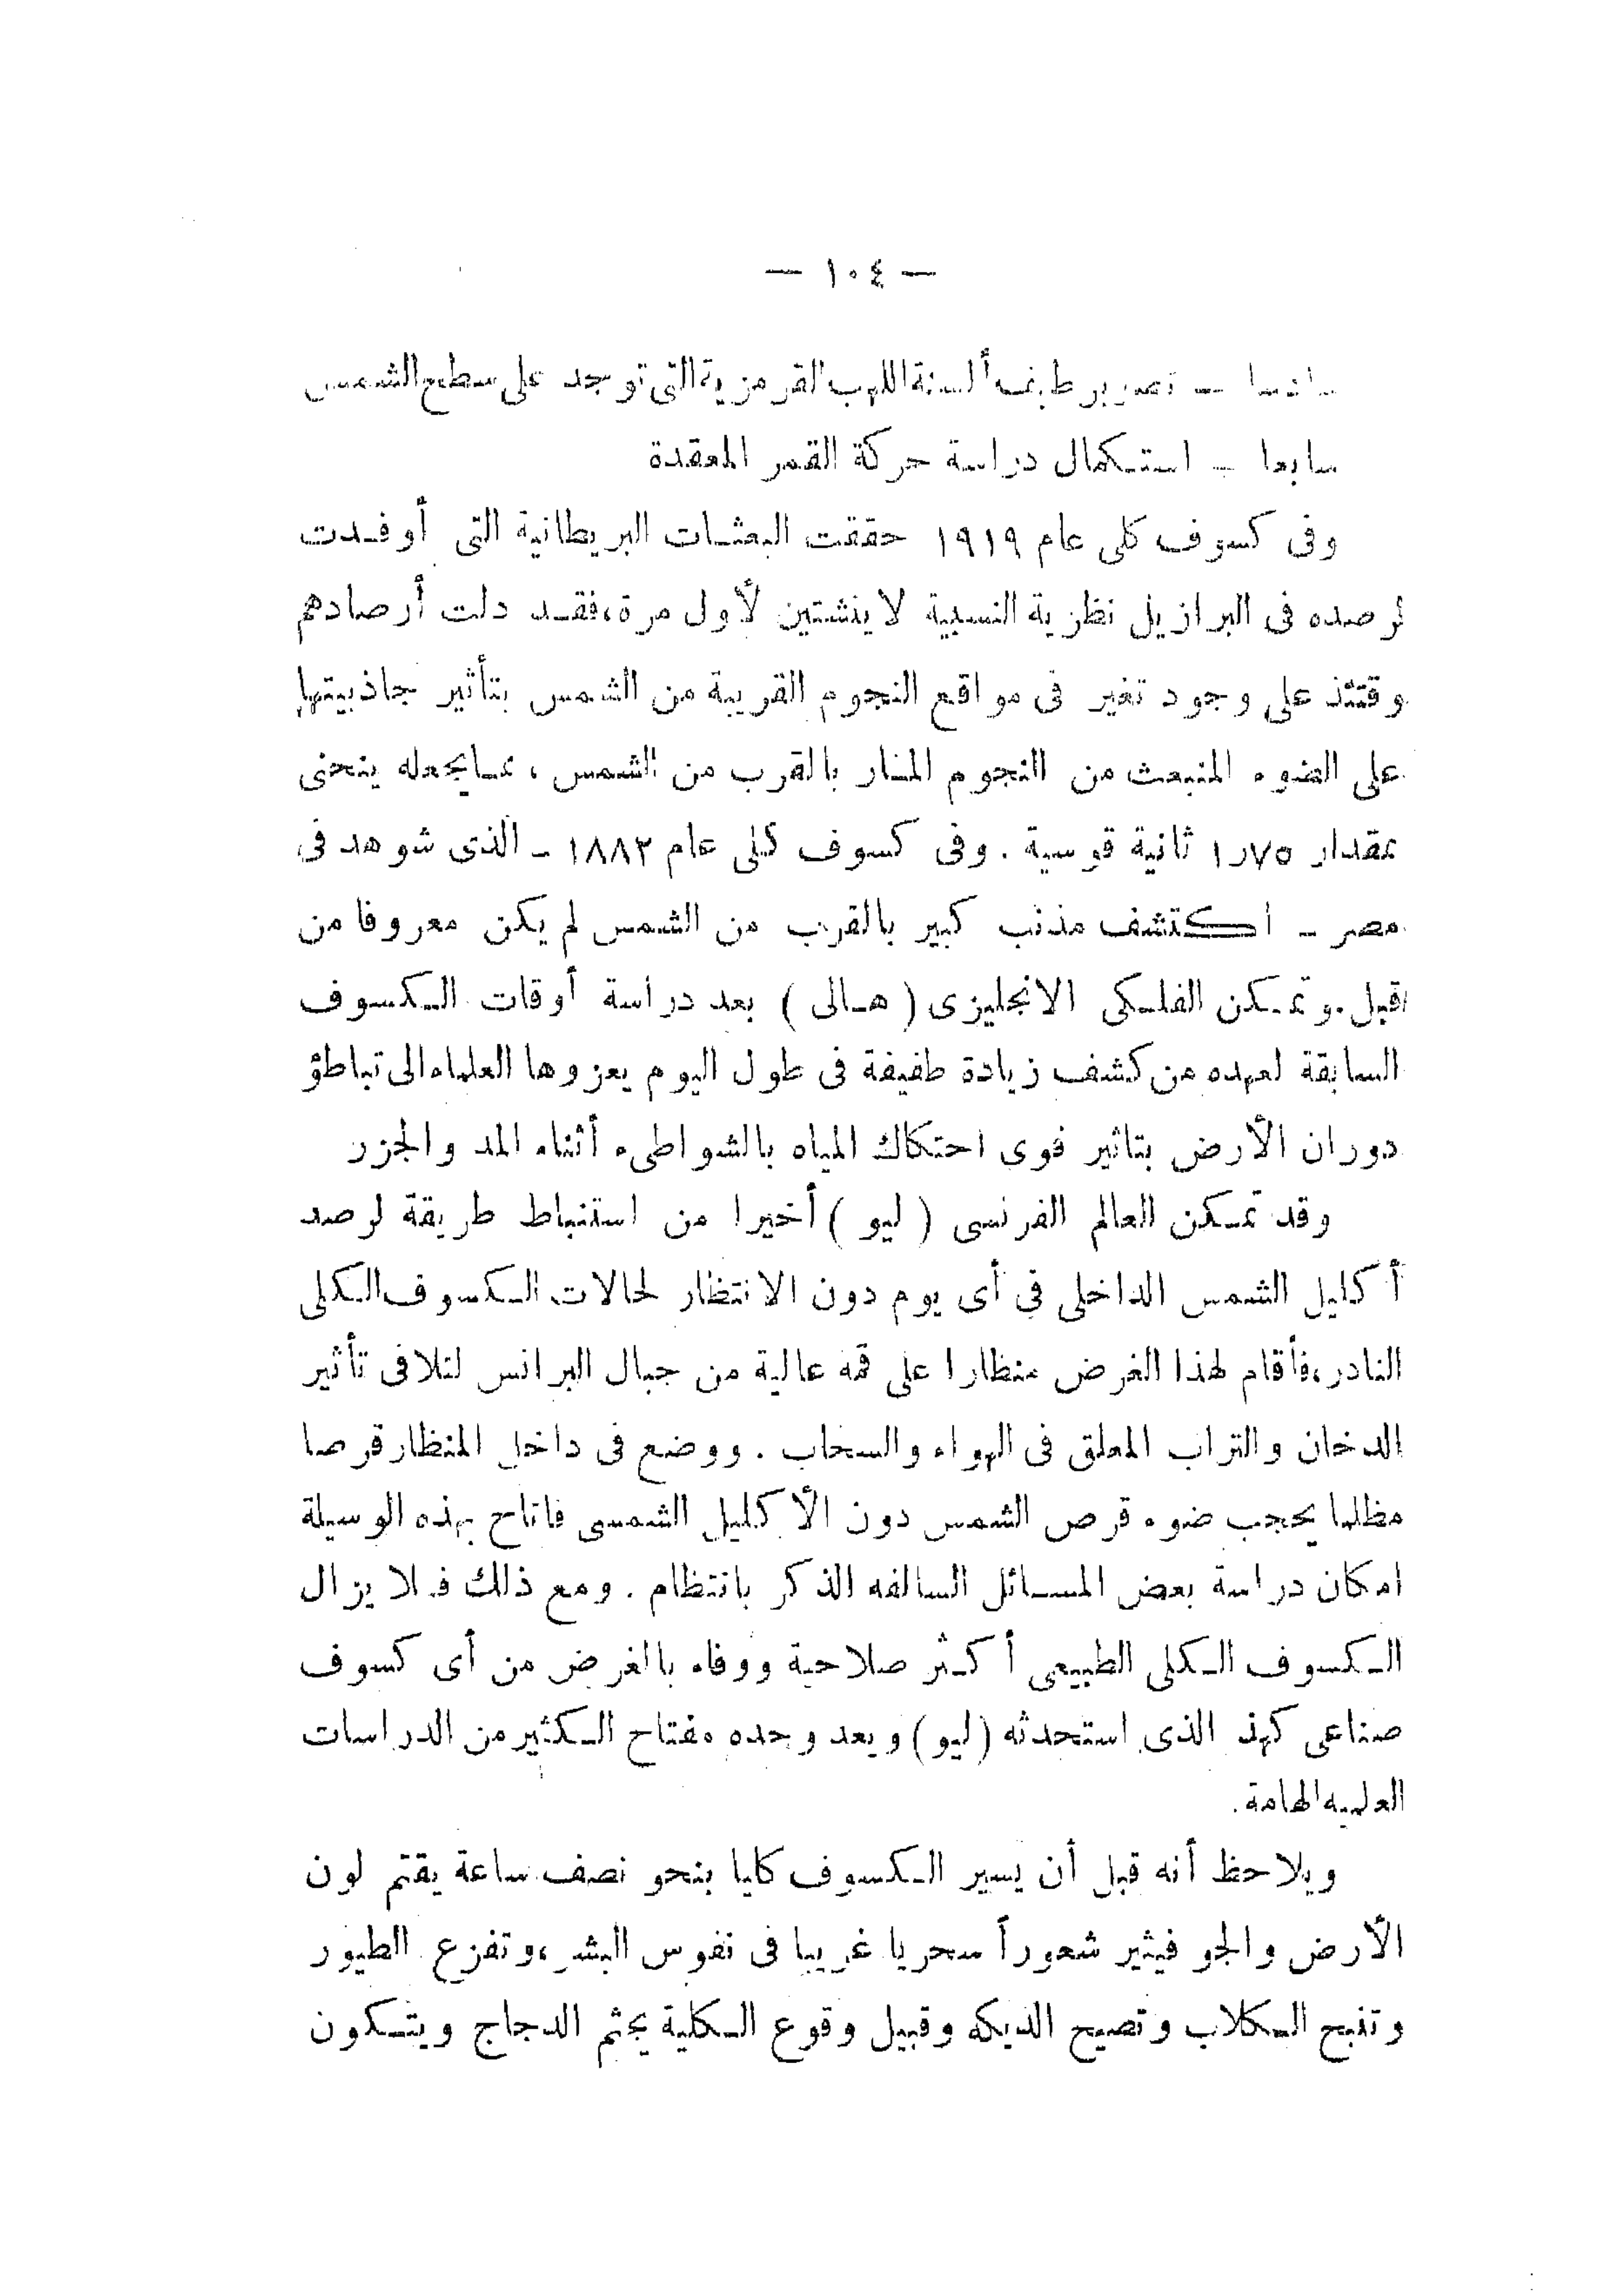 — ١٠٤ —
سادسا — تصوير طيف ألسنة اللهب القرمزية التى توجد على سطح الشمس
سابعا — استكمال دراسة حركة القمر المعقدة
وفى كسوف كلى عام ١٩١٩ حققت البعثات البريطانية التى أوفدت
لرصده فى البرازيل نظرية النسبية لاينشتين لأول مرة، فقد دلت أرصادهم
وقتئذ على وجود تغير فى مواقع النجوم القريبة من الشمس بتأثير جاذبيتها
على الضوء المنبعث من النجوم المار بالقرب من الشمس ، مما يجعله ينحنى
بمقدار ١٫٧٥ ثانية قوسية . وفى كسوف كلى عام ١٨٨٢ - الذى شوهد فى
مصر - اكتشف مذنب كبير بالقرب من الشمس لم يكن معروفا من
قبل . وتمكن الفلكى الانجليزى ( هالى ) بعد دراسة أوقات الكسوف
السابقة لعهده من كشف زيادة طفيفة فى طول اليوم يعزوها العلماء الى تباطؤ
دوران الأرض بتاثير قوى احتكاك المياه بالشواطىء أثناء المد والجزر
وقد تمكن العالم الفرنسى ( ليو ) أخيرا من استنباط طريقة لرصد
أكليل الشمس الداخلى فى أى يوم دون الانتظار لحالات الكسوف الكلى
النادر، فأقام لهذا الغرض منظارا على قمه عالية من جبال البرانس لتلافى تأثير
الدخان والتراب المعلق فى الهواء والسحاب . ووضع فى داخل المنظار قرصا
مظلما يحجب ضوء قرص الشمس دون الأكليل الشمسى فاتاح بهذه الوسيلة
امكان دراسة بعض المسائل السالفه الذكر بانتظام . ومع ذلك فلا يزال
الكسوف الكلى الطبيعى أكثر صلاحية ووفاء بالغرض من أى كسوف
صناعى كهذ الذى استحدثه ( ليو ) ويعد وحده مفتاح الكثير من الدراسات
العلميه الهامة .
ويلاحظ أنه قبل أن يسير الكسوف كليا بنحو نصف ساعة يقتم لون
الأرض والجو فيثير شعوراً سحريا غريبا فى نفوس البشر ، وتفزع الطيور
وتنبح الكلاب وتصيح الديكه وقبيل وقوع الكلية يجثم الدجاج ويتكون